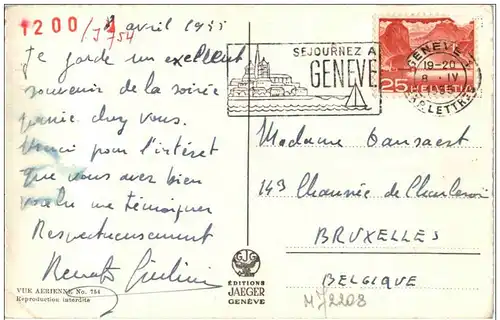 1200
/J 754
8 avril 1955
Je garde un excellent
souvenir de la soirée
passée chez vous.
Merci pour l'intérêt
que vous avez bien
voulu me témoigner
Respectueusement
Renato
VUE AERIENNE No. 754
Reproduction interdite
SEJOURNEZ A
GENEVE
GENEVE 1
19-20
8 . IV
LETTRES
25 HELVETIA
Madame Dansaert
149 Chaussée de Charleroi
BRUXELLES
BELGIQUE
EDITIONS
JAEGER
GENÈVE
M/2208